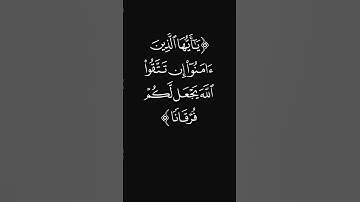 ﴿يَٰٓأَيُّهَا ٱلَّذِينَ
ءَامَنُوٓاْ إِن تَتَّقُواْ
ٱللَّهَ يَجۡعَل لَّكُمۡ
فُرۡقَانٗا﴾